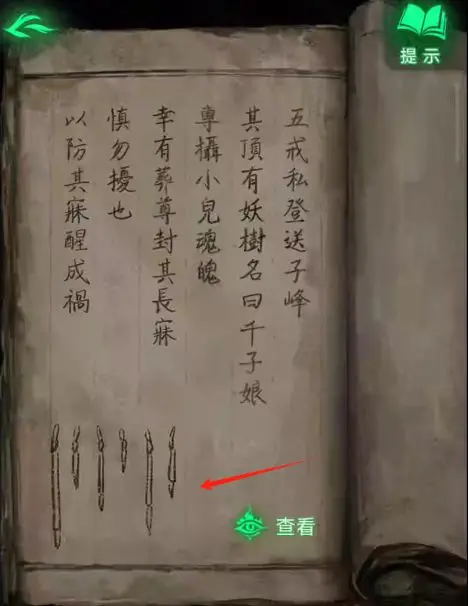 五戒私登送子峰
其頂有妖樹名曰千子娘
專攝小兒魂魄
幸有葬尊封其長寐
慎勿擾也
以防其寐醒成禍
查看
提示